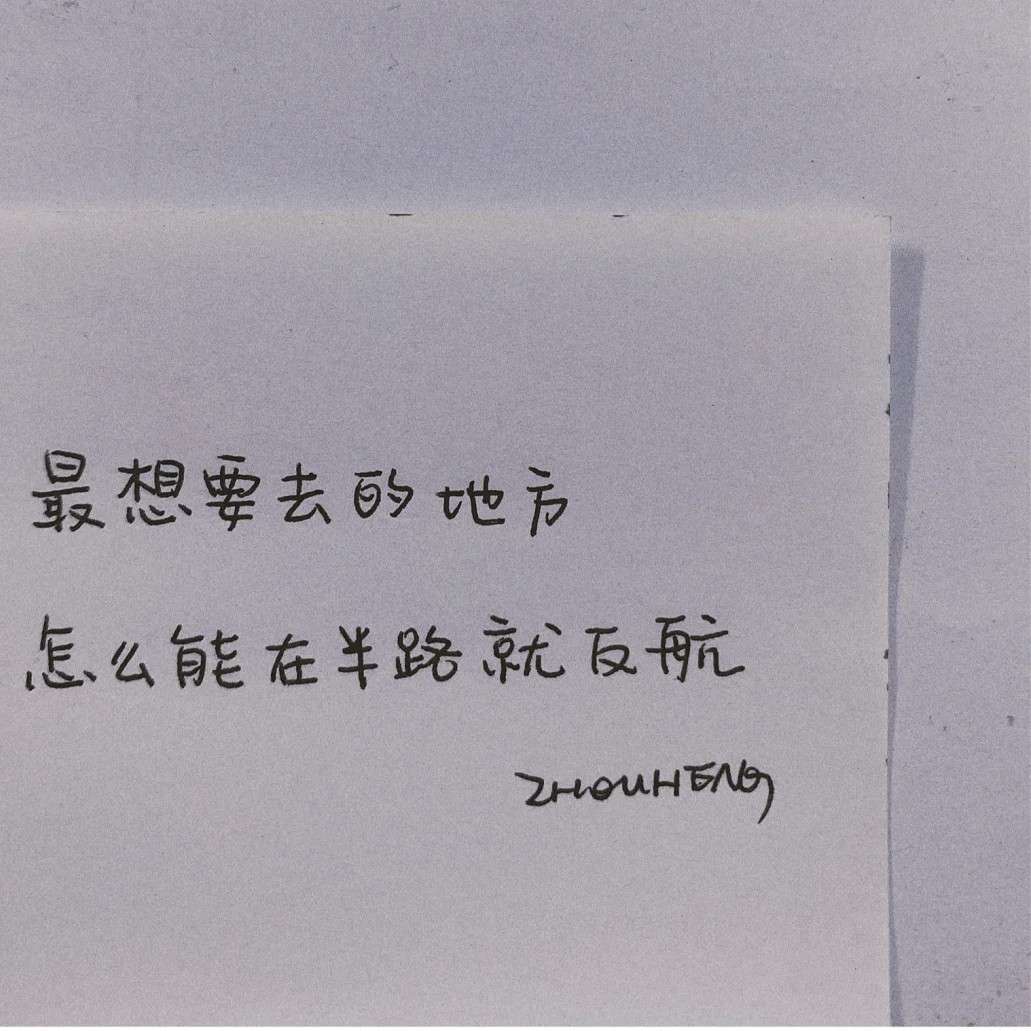 最想要去的地方
怎么能在半路就反航
ZHOUHENG